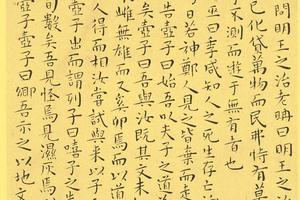 問明王之治老聃曰明王之治
已化貸萬物而民弗恃有莫
不測而遊于無有者也
巫曰季咸知人之死生存亡
日若神鄭人見之皆棄而走
告壺子曰始吾以夫子之道
矣壺子曰吾與汝既其文未
雌無雄而又奚卵焉而以道
人得而相汝嘗試與来以予
壺子出而謂列子曰嘻子之
旬數矣吾見怪焉見濕灰焉
壺子壺子曰鄉吾示之以地文